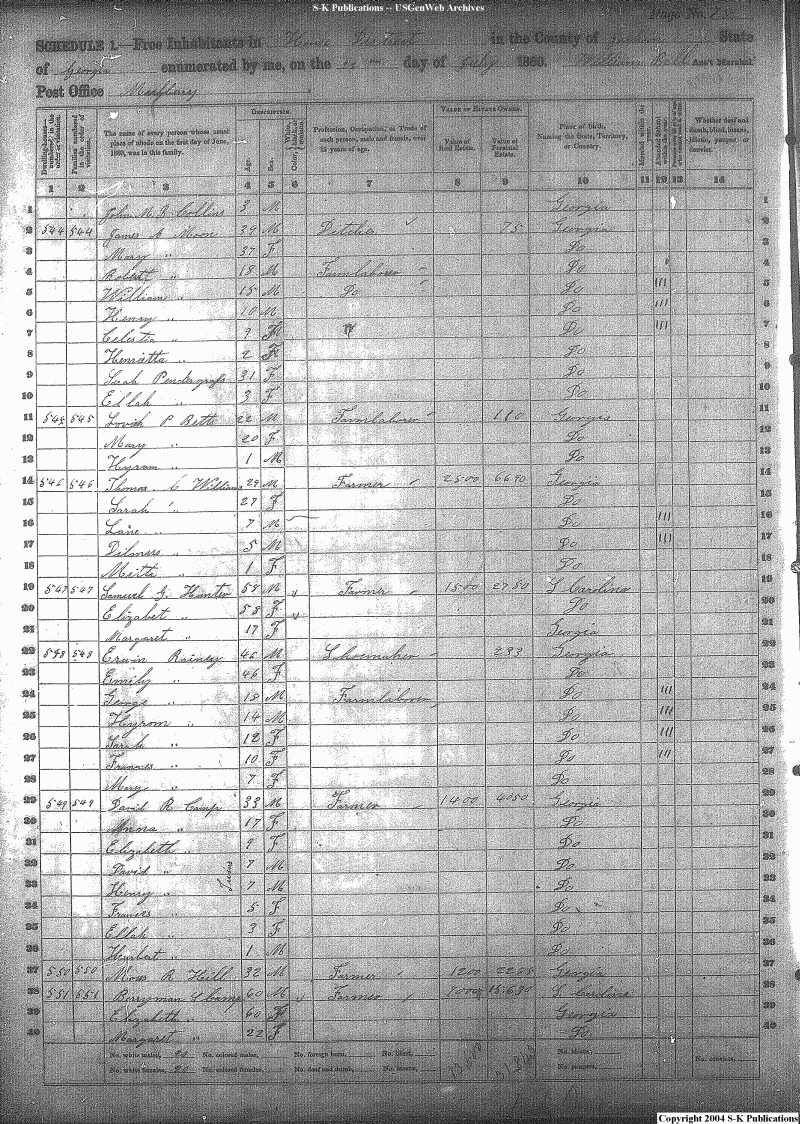 S-K Publications -- USGenWeb Archives
Page No.
SCHEDULE 1.—Free Inhabitants in House District in the County of State
of Georgia enumerated by me, on the day of July 1860. William Bell Ass't Marshal
Post Office
Dwelling-houses numbered in the order of visitation.
Families numbered in the order of visitation.
The name of every person whose usual place of abode on the first day of June, 1860, was in this family.
DESCRIPTION.
Age.
Sex.
Color,
Profession, Occupation, or Trade of each person, male and female, over 15 years of age.
VALUE OF ESTATE OWNED.
Value of Real Estate.
Value of Personal Estate.
Place of Birth, Naming the State, Territory, or Country.
Married within the year.
Attended School within the year.
Whether deaf and dumb, blind, insane, idiotic, pauper, or convict.
1 2 3 4 5 6 7 8 9 10 11 12 13 14
1 John M. J. Collins 3 M Georgia 1
2 544 544 James A Moon 39 M Ditcher 75 Georgia 2
3 Mary " 37 F Do 3
4 Robert " 18 M Farmlaborer Do 4
5 William " 15 M Do Do 5
6 Henry " 10 M Do 6
7 Celestia " 9 F Do 7
8 Henrietta " 2 F Do 8
9 Sarah Pendergrass 31 F Do 9
10 Ellah " 3 F Do 10
11 545 545 P Betts 22 M Farmlaborer Georgia 11
12 Mary " 20 F Do 12
13 Hyram " 1 M Do 13
14 546 546 Thomas C Williams 29 M Farmer 2500 6690 Georgia 14
15 Sarah " 27 F Do 15
16 7 M Do 16
17 5 M Do 17
18 Mitta " 1 F Do 18
19 547 547 Samuel G. Hunter 58 M Farmer 1500 2750 S Carolina 19
20 Elizabet " 58 F Do 20
21 Margaret " 17 F Georgia 21
22 548 548 Erwin Rainey 46 M Shoemaker 233 Georgia 22
23 Emily " 46 F Do 23
24 George " 18 M Farmlaborer Do 24
25 Hyrom " 14 M Do 25
26 Sarah " 12 F Do 26
27 Frances " 10 F Do 27
28 Mary " 7 F Do 28
29 549 549 David R Camp 33 M Farmer 1400 4050 Georgia 29
30 Anna " 17 F Do 30
31 Elizabeth " 9 F Do 31
32 David " 7 M Do 32
Twins
33 Henry " 7 M Do 33
34 Frances " 5 F Do 34
35 Ellah " 3 F Do 35
36 Hurbert " 1 M Do 36
37 550 550 Moses R Hill 32 M Farmer 1200 Georgia 37
38 551 551 Berryman S Camp 60 M Farmer 15630 S Carolina 38
39 Elizabeth " 60 F Georgia 39
40 Margaret " 22 F Do 40
No. white males, 20 No. colored males, No. foreign born, No. blind, No. idiotic, No. convicts,
No. white females, 20 No. colored females, No. deaf and dumb, No. insane, No. paupers,
Copyright 2004 S-K Publications